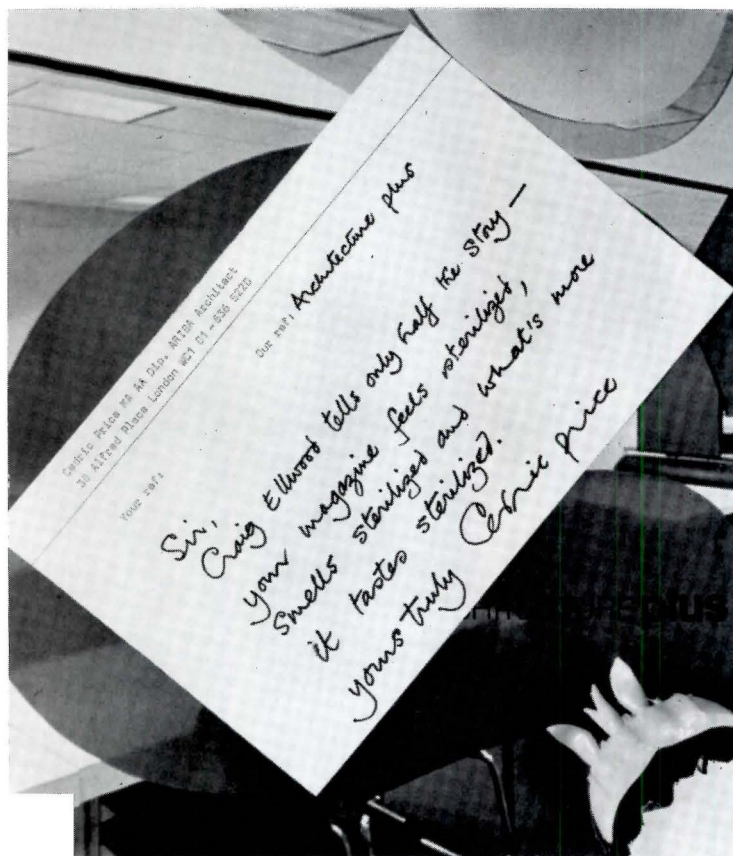 Cedric Price MA AA Dip. ARIBA Architect
38 Alfred Place London WC1 01-636 5220
Your ref:
Our ref: Architecture plus
Sir,
Craig Ellwood tells only half the story —
your magazine feels sterilized,
smells sterilized and what's more
it tastes sterilized.
yours truly Cedric Price
plus